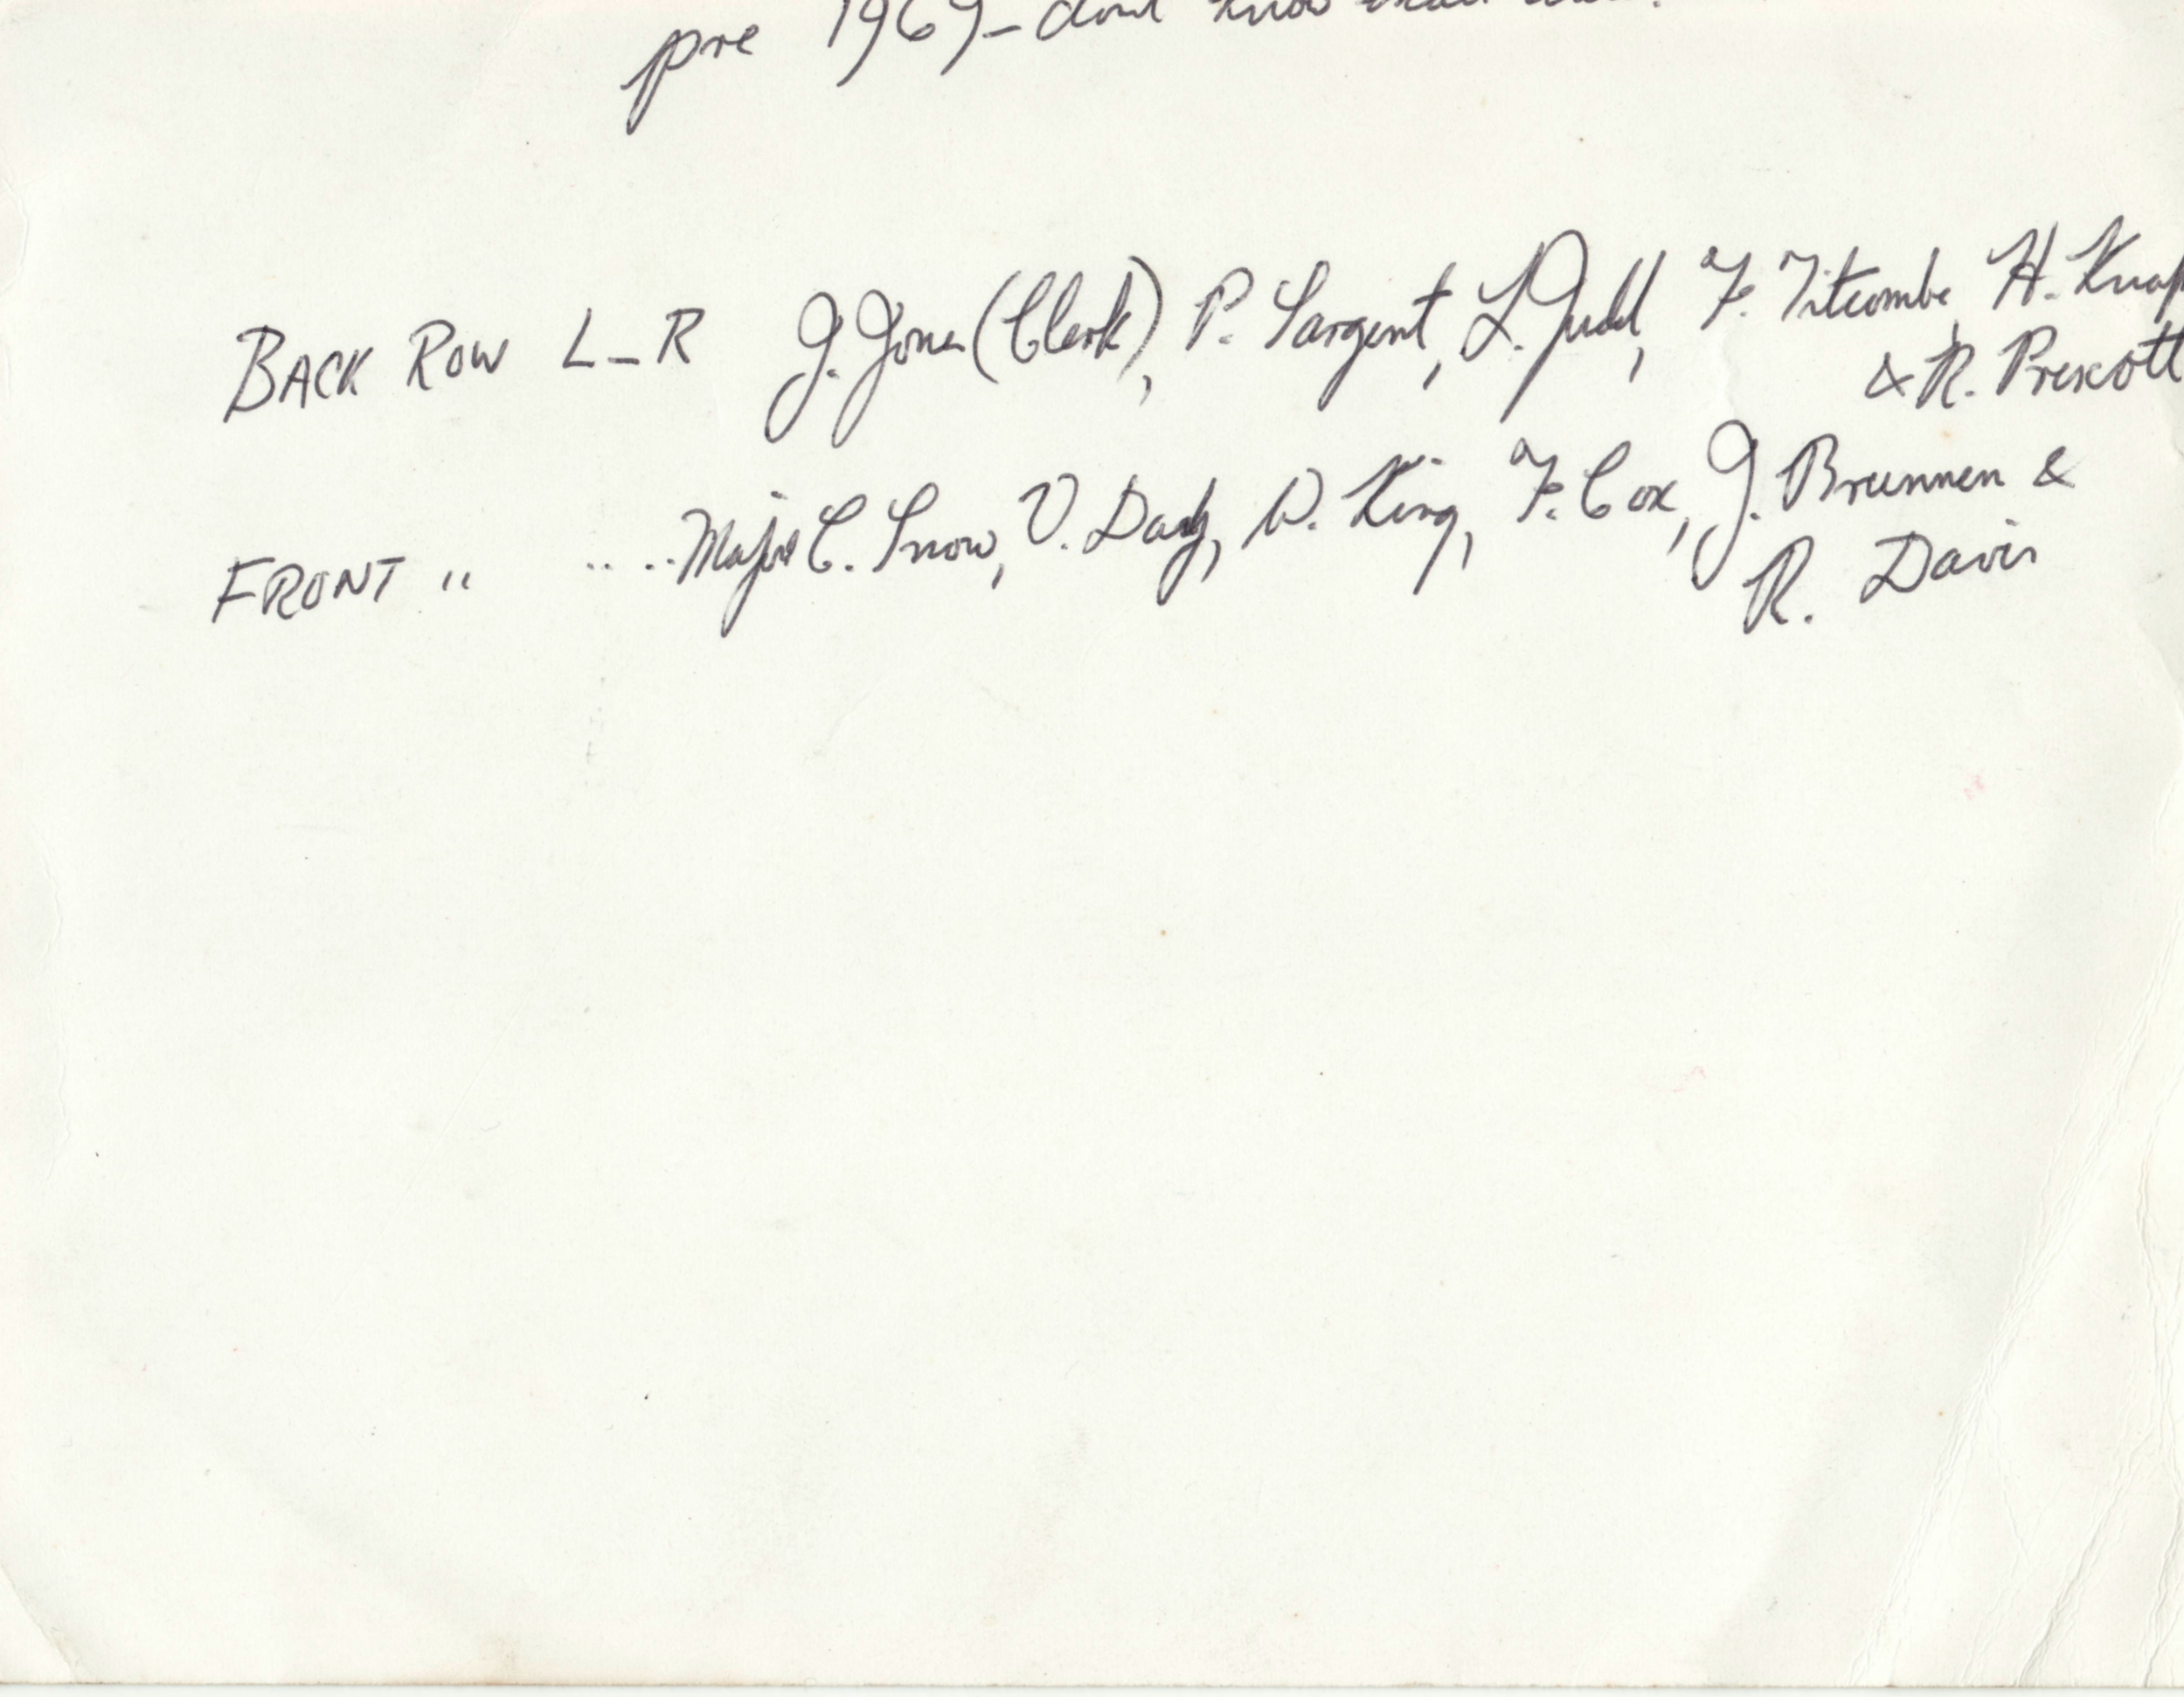 pre 1969 - dont know exact
BACK ROW L-R J. Jones (Clerk), P. Sargent, L. Judd, F. Titcombe, H. Knap
& R. Prescott
FRONT " " " Major C. Snow, V. Dady, W. King, F. Cox, J. Brunnen &
R. Davis